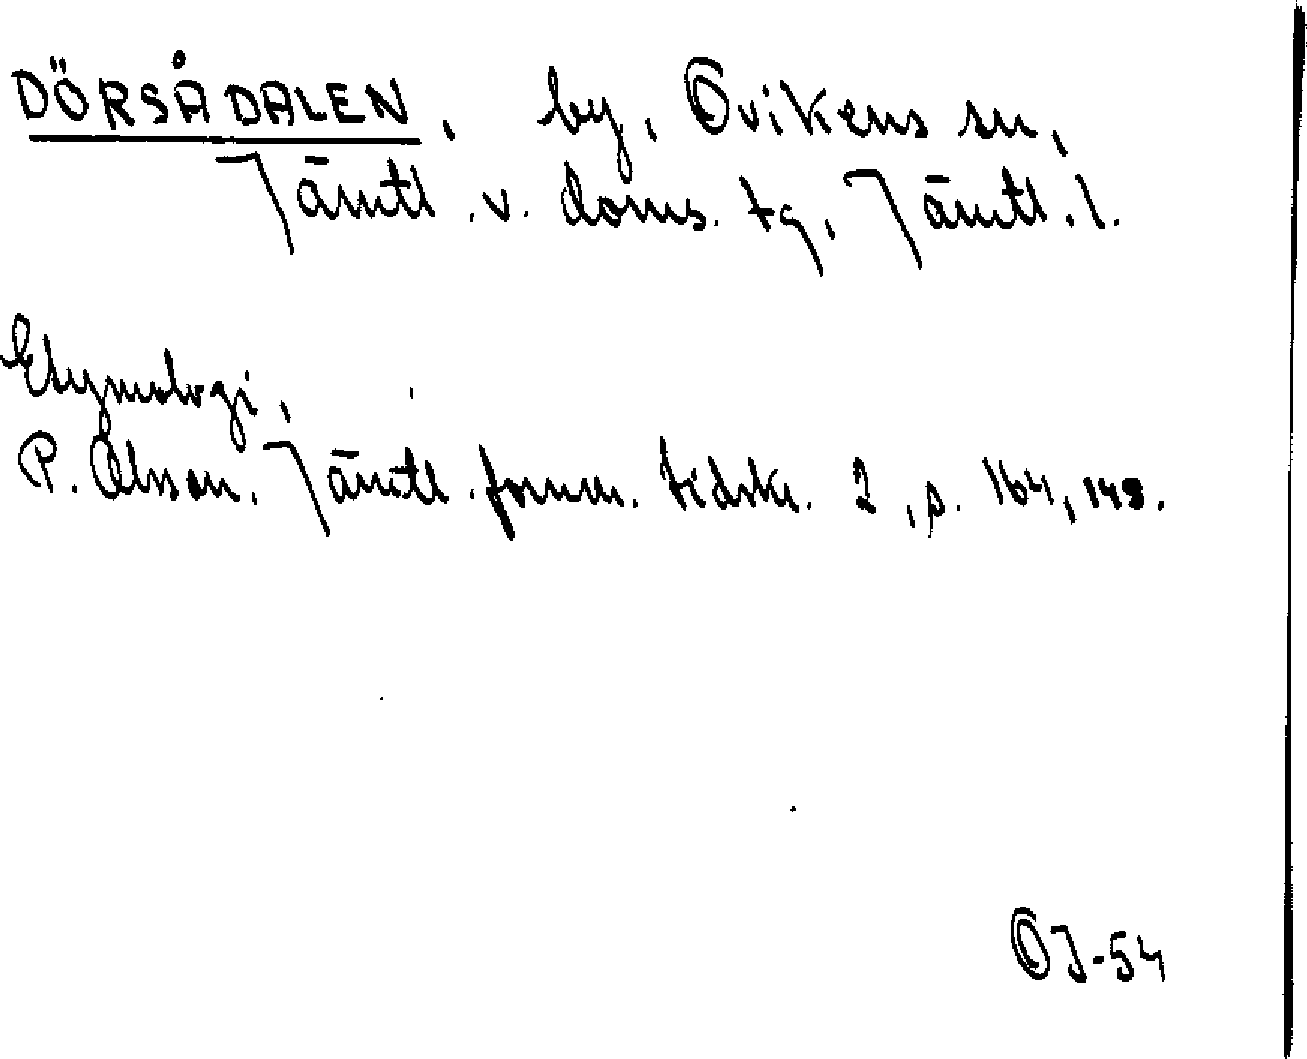 DÖRSÅDALEN, by, Ovikens sn,
Jämtl. v. doms. tg, Jämtl. l.
Etymologi,
P. Olsson. Jämtl. fornm. tidskr. 2, s. 164, 148.
OJ-54